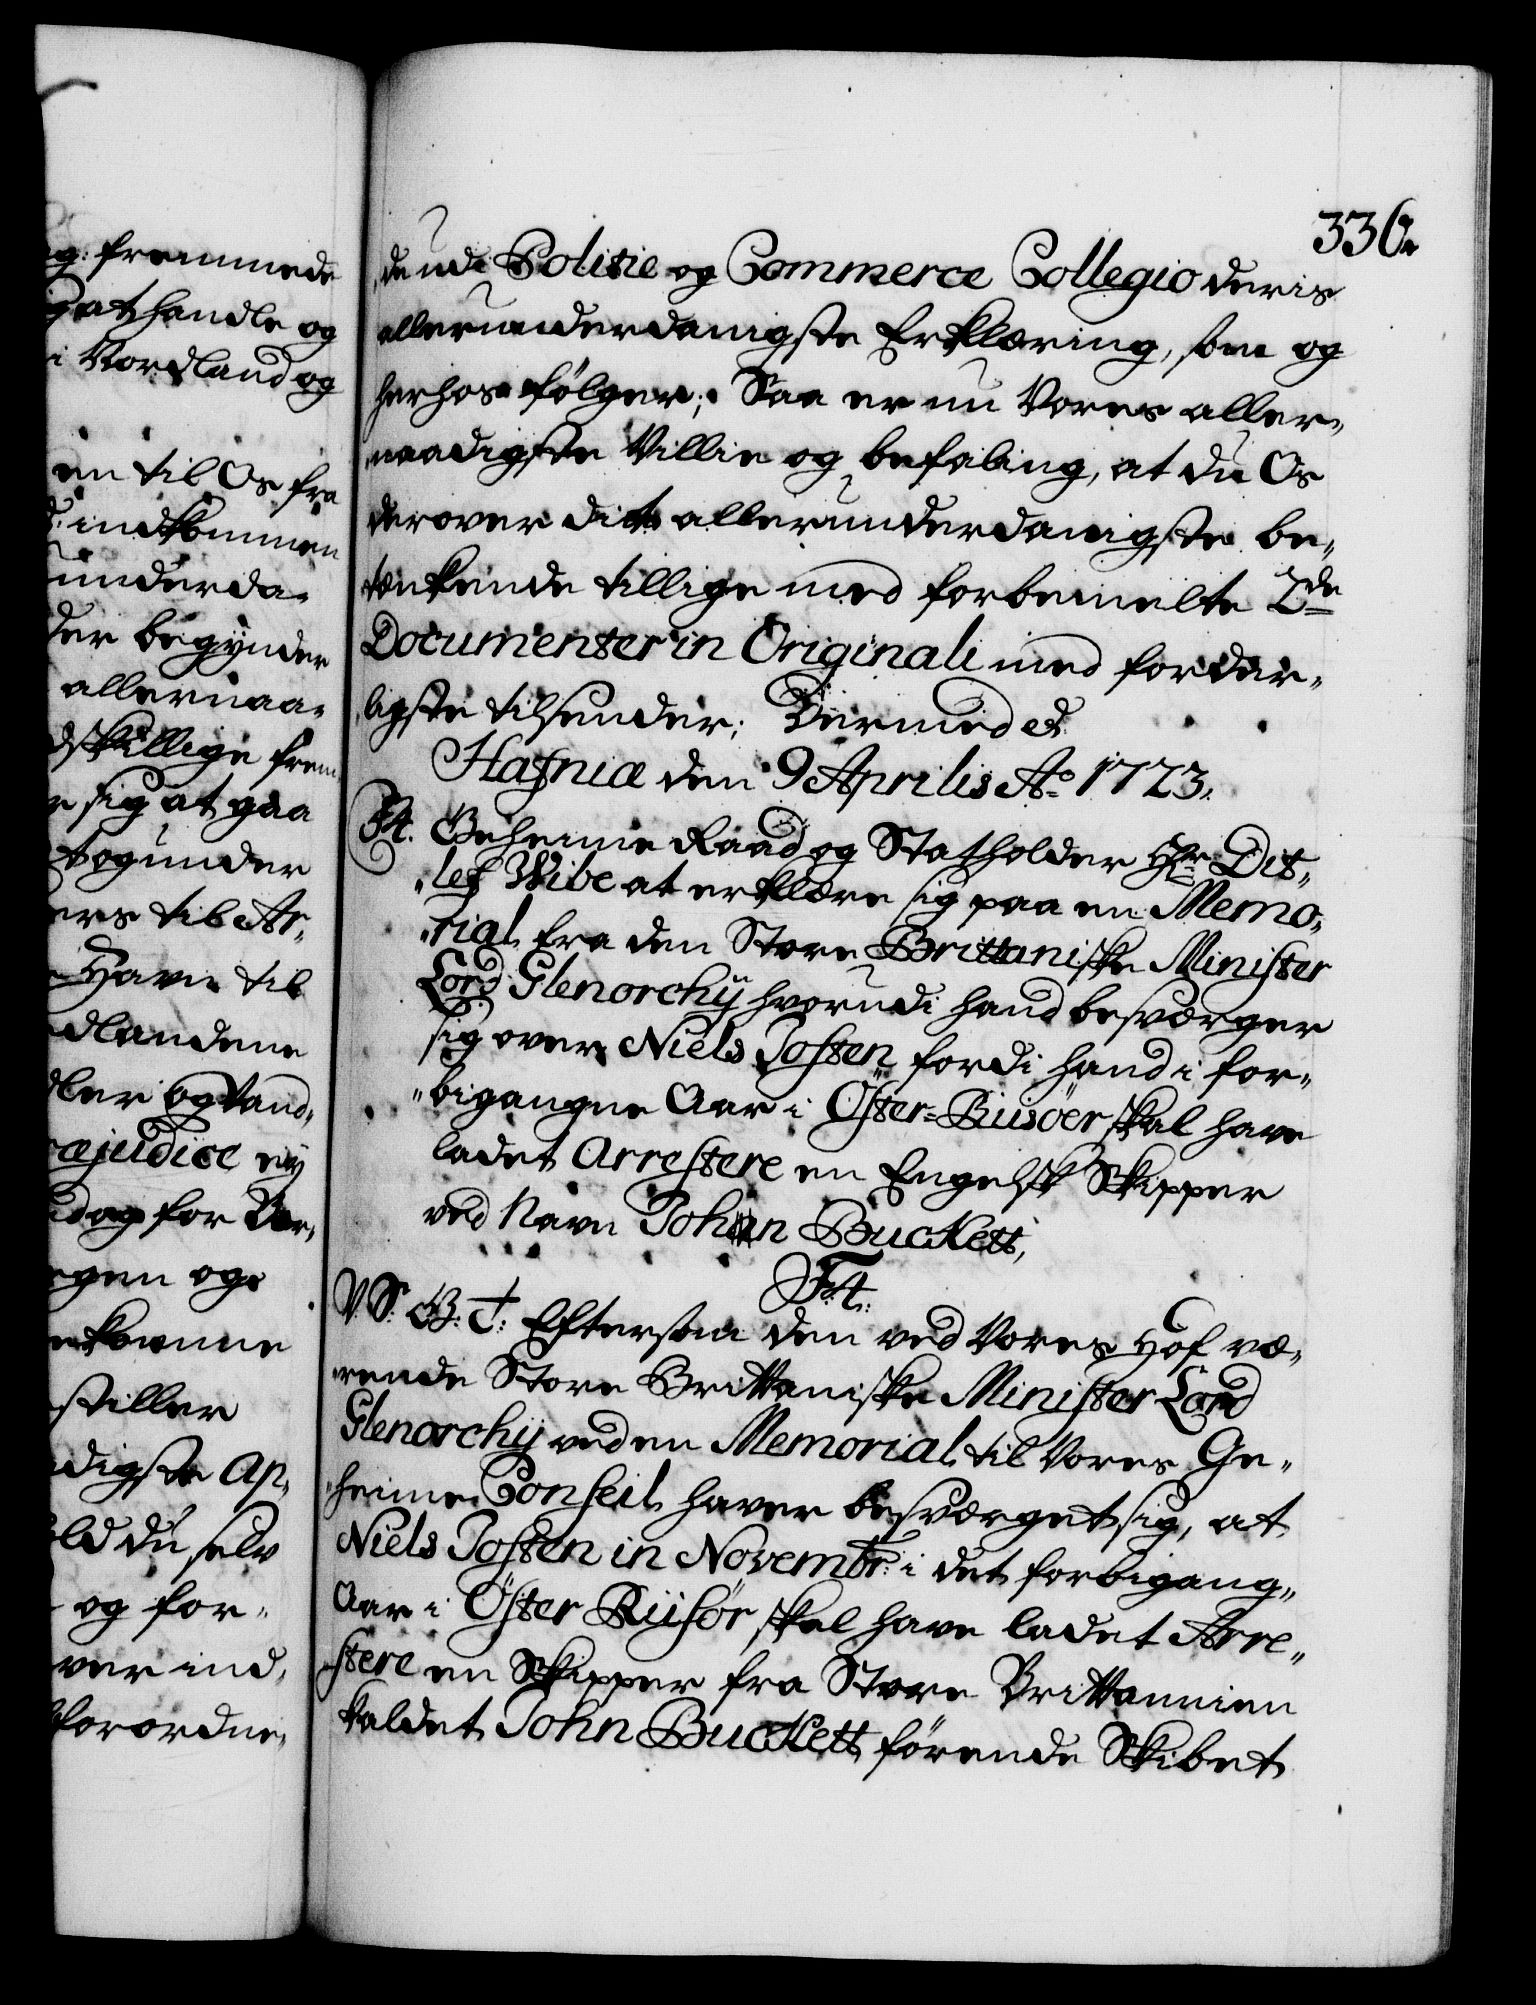 g: fremmede
at handle og
i Nordland og
en til Os fra
indkommen
underda-
der begynder
allernaa-
dskillige frem
sig at gaa
tog under
ers til Ar-
Havn til
dlandene
og Vand,
ræjudice ey
dag for Vor,
gen og
ekomme
stiller
digste Ap,
du selv
og for-
ver ind,
forordne,
336.
de udi Politie og Commerce Collegio deris
allerunderdanigste Erklæring, som og
herhos følger; Saa er nu Vores aller-
naadigste Villie og befaling, at du Os
derover dit allerunderdanigste be-
tænkende tillige med forbemelte 2de
Documenter in Originali med forder-
ligste tilsender; Dermed etc.
Hafniæ den 9 Aprilis Ao 1723.
F4. Geheime Raad og Statholder Hr. Dit-
lef Wibe at erklære sig paa en Memo-
rial fra den Store Brittaniske Minister
Lord Glenorchÿ hvorudi hand besværger
sig over Niels Josten fordi hand i for-
bigangne Aar i Öster-Riisöer skal have
ladet Arrestere en Engelsk Skipper
ved Navn Johan Buckett,
F4.
V. S. G: T: Eftersom den ved Vores Hof væ-
rende Store Brittaniske Minister Lord
Glenorchÿ ved en Memorial til Vores Ge-
heime Conseil haver besværget sig, at
Niels Josten in Novembr: i det forbigang,
Aar i Öster Riisör skal have ladet Arre-
stere en Skipper fra Store Brittannien
kaldet John Buckett förende Skibet